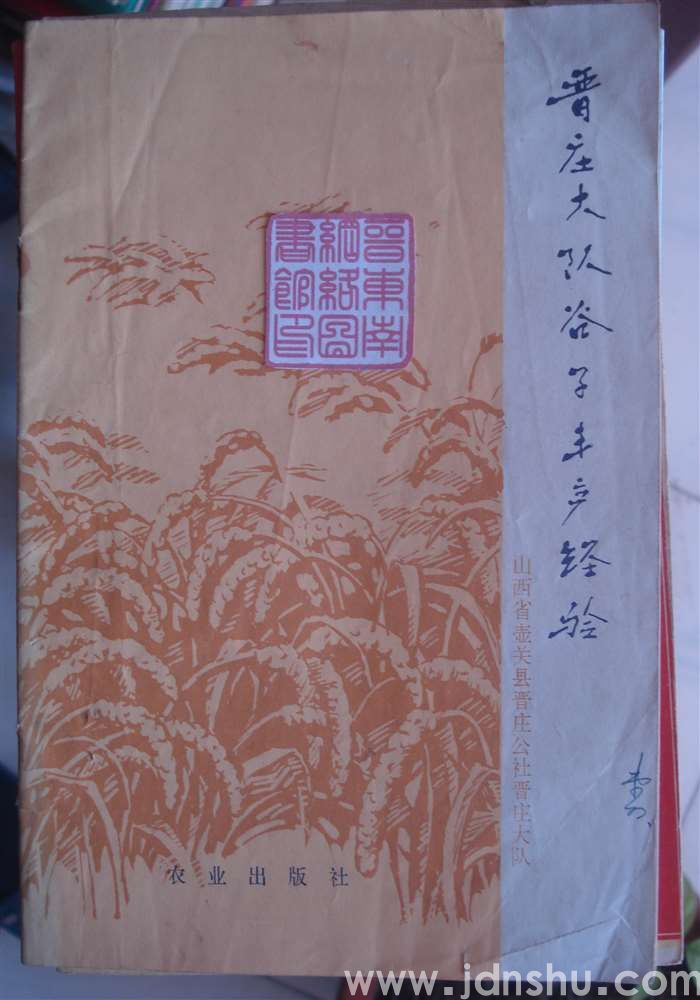 晋庄大队谷子丰产经验
山西省壶关县晋庄公社晋庄大队
晋东南
网络图
书馆印
农业出版社
www.jdnshu.com